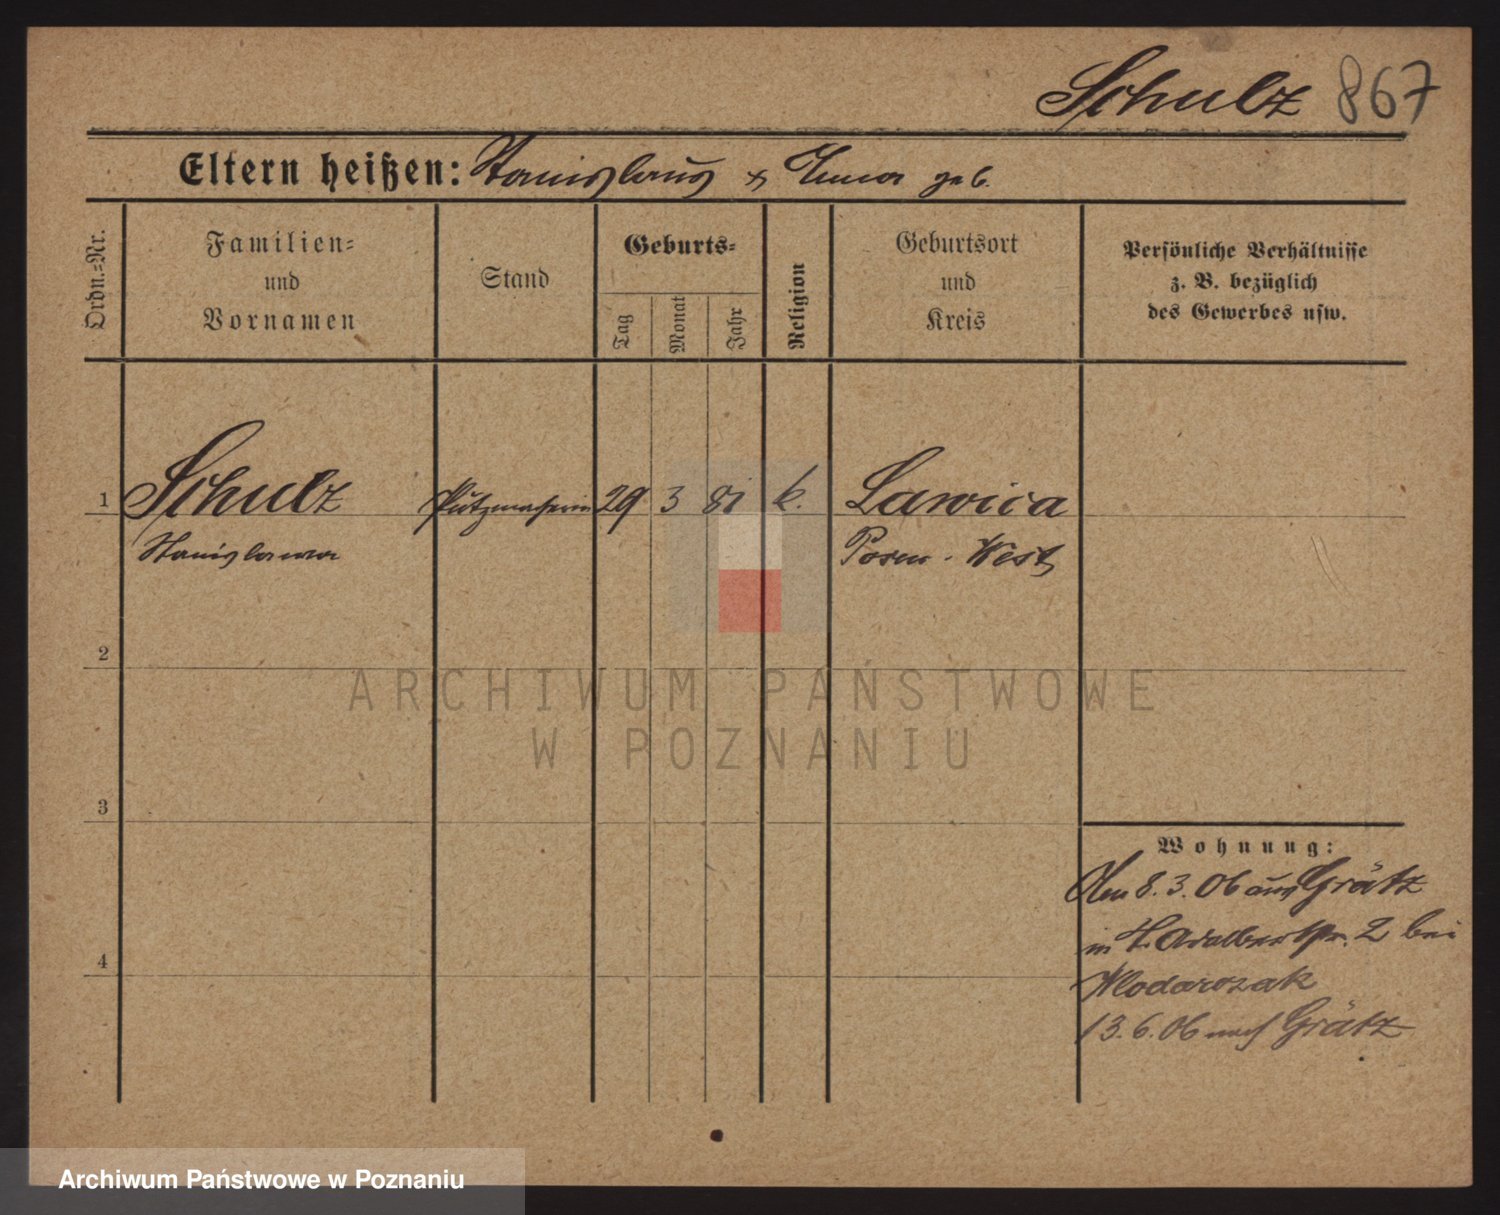 Schulz 867
Eltern heißen: Stanislaus & Emma geb.
Ordn.-Nr.
Familien-
und
Vornamen
Stand
Geburts-
Tag
Monat
Jahr
Religion
Geburtsort
und
Kreis
Persönliche Verhältnisse
z. B. bezüglich
des Gewerbes usw.
1 Schulz Putzmacherin 29 3 81 k. Lawica
Stanislawa Posen - West
2
ARCHIWUM PAŃSTWOWE
W POZNANIU
3
Wohnung:
Am 8.3.06 aus Grätz
in St. Adalbertstr. 2 bei
4
Wlodarczak
13.6.06 nach Grätz
Archiwum Państwowe w Poznaniu